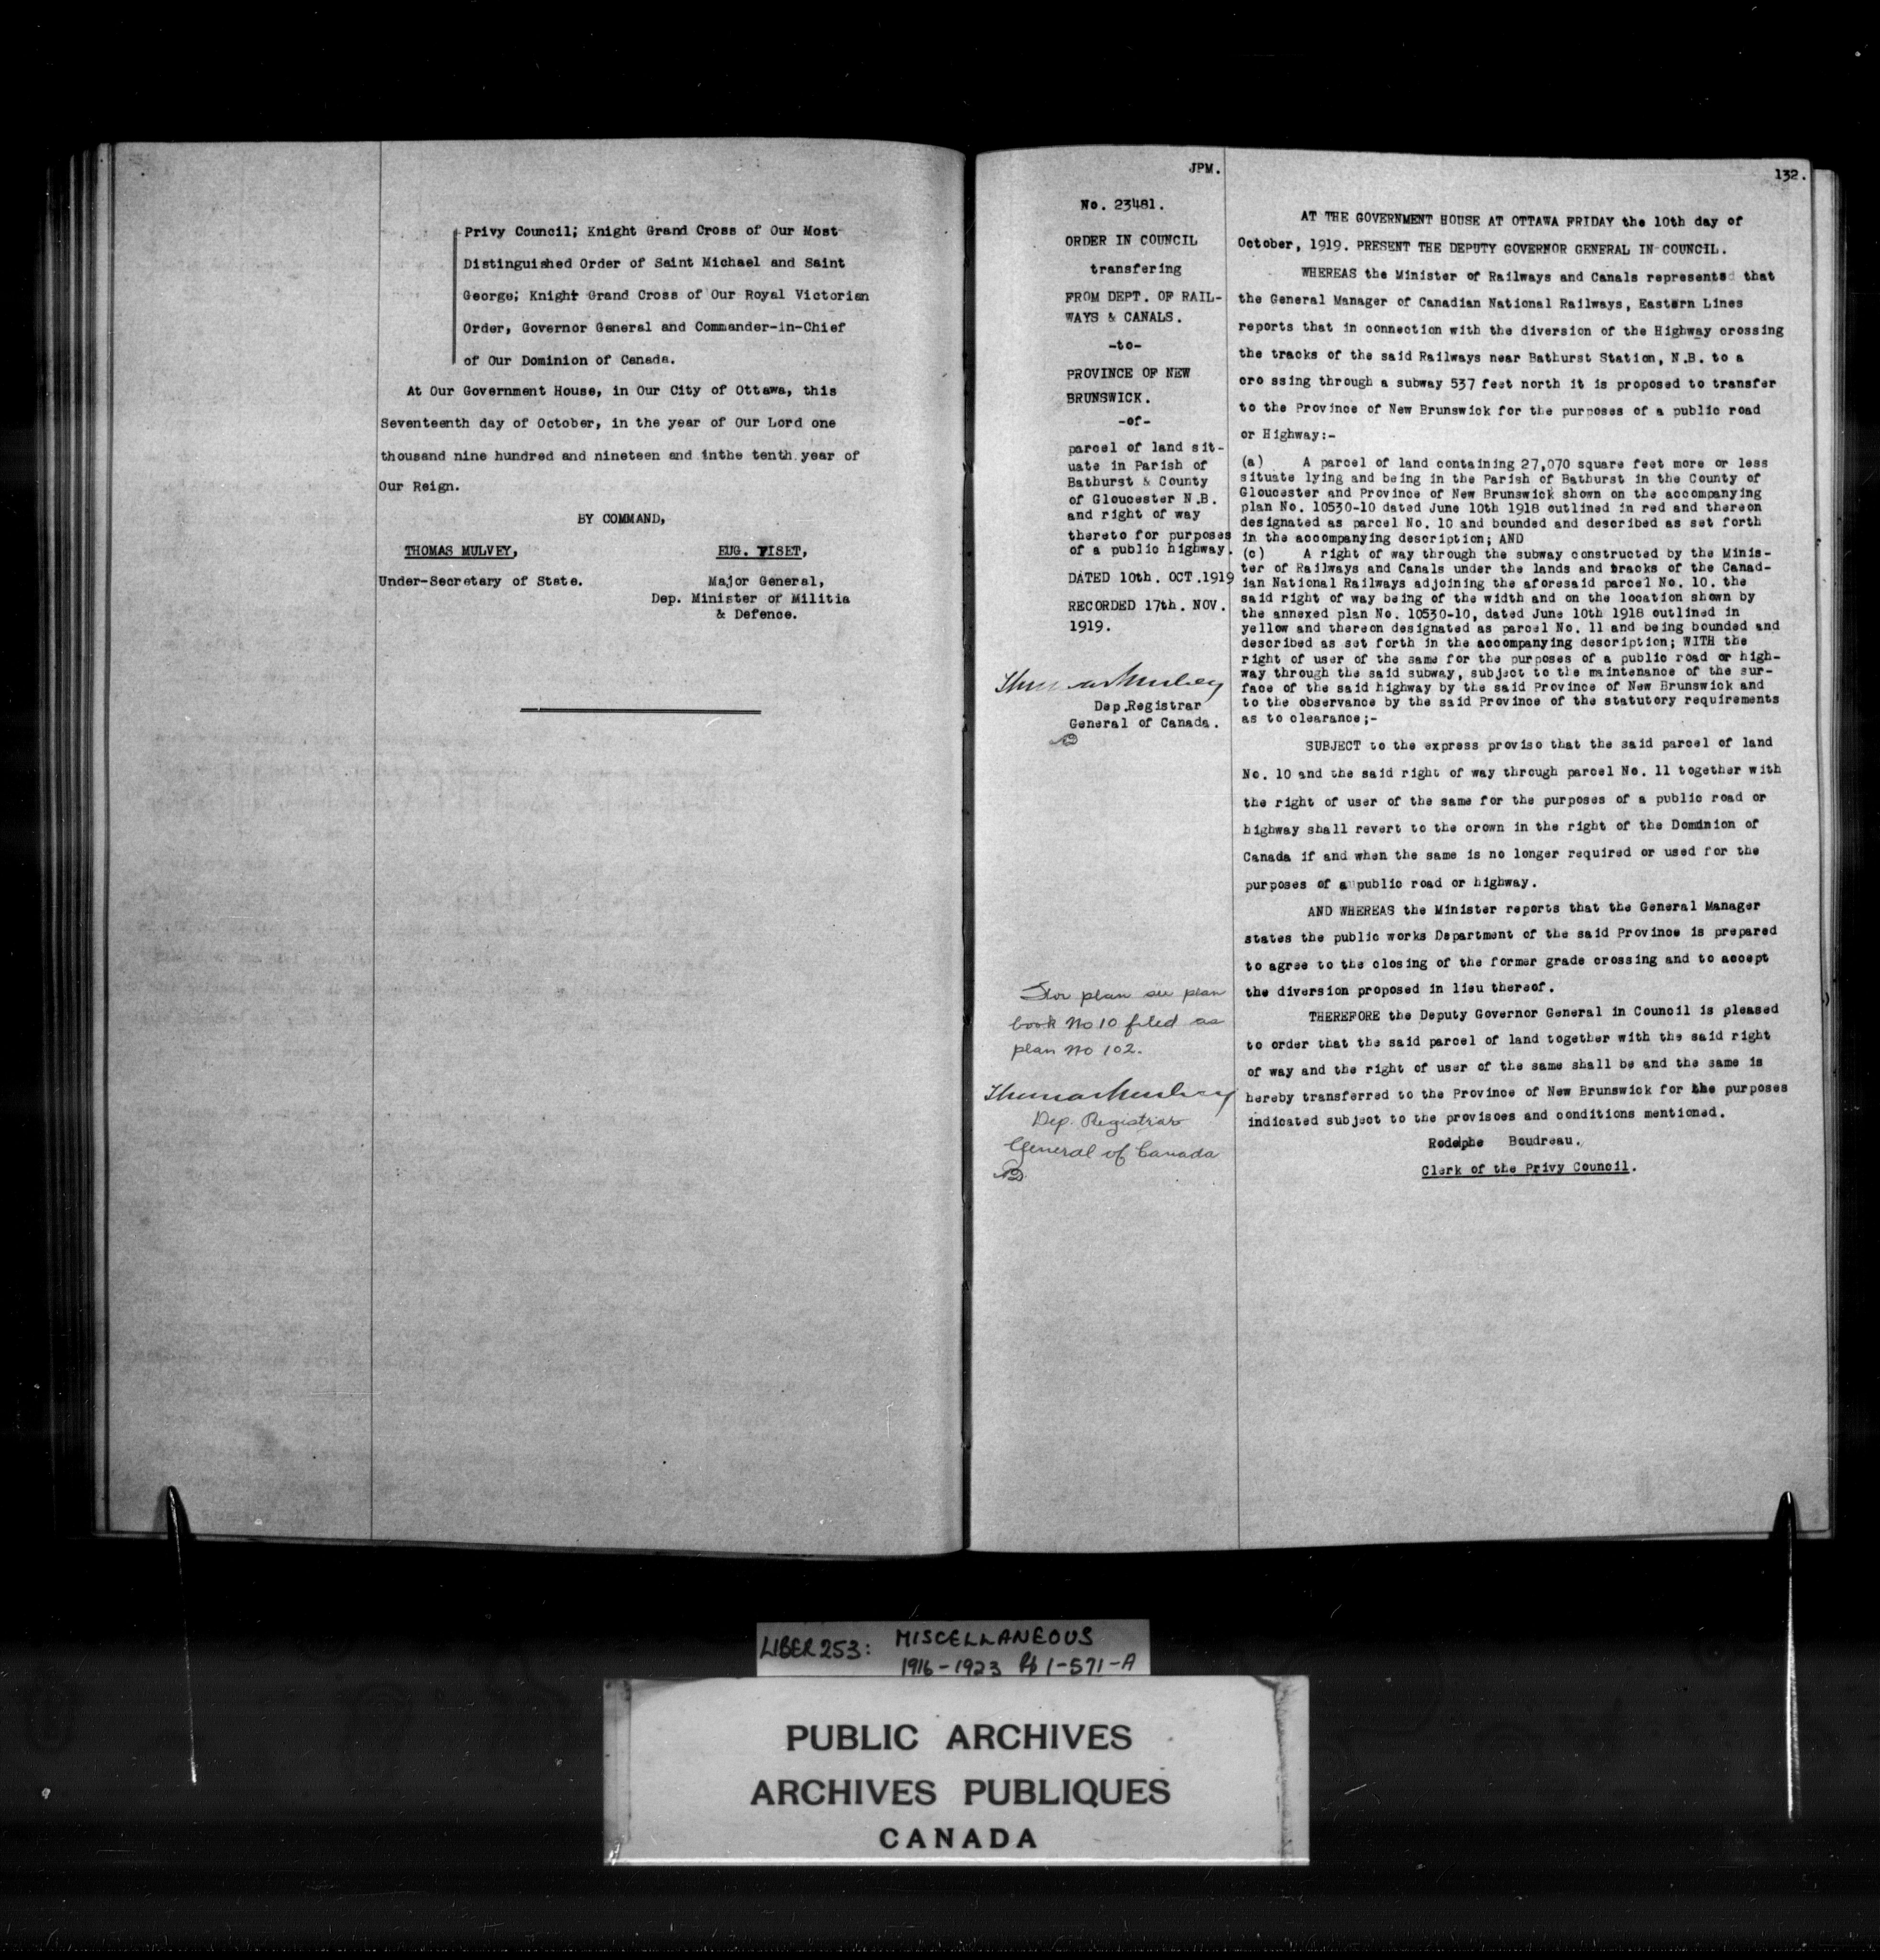 Privy Council; Knight Grand Cross of Our Most
Distinguished Order of Saint Michael and Saint
George; Knight Grand Cross of Our Royal Victorian
Order, Governor General and Commander-in-Chief
of Our Dominion of Canada.
At Our Government House, in Our City of Ottawa, this
Seventeenth day of October, in the year of Our Lord one
thousand nine hundred and nineteen and inthe tenth year of
Our Reign.
BY COMMAND,
THOMAS MULVEY, EUG. FISET,
Under-Secretary of State. Major General,
Dep. Minister of Militia
& Defence.
JPM.
No. 23481.
ORDER IN COUNCIL
transfering
FROM DEPT. OF RAIL-
WAYS & CANALS.
-to-
PROVINCE OF NEW
BRUNSWICK.
-of-
parcel of land sit-
uate in Parish of
Bathurst & County
of Gloucester N.B.
and right of way
thereto for purposes
of a public highway.
DATED 10th. OCT.1919
RECORDED 17th. NOV.
1919.
Thomas Mulvey
Dep.Registrar
General of Canada.
For plan see plan
book No 10 filed as
plan No 102.
Thomas Mulvey
Dep. Registrar
General of Canada
132.
AT THE GOVERNMENT HOUSE AT OTTAWA FRIDAY the 10th day of
October, 1919. PRESENT THE DEPUTY GOVERNOR GENERAL IN COUNCIL.
WHEREAS the Minister of Railways and Canals represents that
the General Manager of Canadian National Railways, Eastern Lines
reports that in connection with the diversion of the Highway crossing
the tracks of the said Railways near Bathurst Station, N.B. to a
cro ssing through a subway 537 feet north it is proposed to transfer
to the Province of New Brunswick for the purposes of a public road
or Highway:-
(a) A parcel of land containing 27,070 square feet more or less
situate lying and being in the Parish of Bathurst in the County of
Gloucester and Province of New Brunswick shown on the accompanying
plan No. 10530-10 dated June 10th 1918 outlined in red and thereon
designated as parcel No. 10 and bounded and described as set forth
in the accompanying description; AND
(c) A right of way through the subway constructed by the Minis-
ter of Railways and Canals under the lands and tracks of the Canad-
ian National Railways adjoining the aforesaid parcel No. 10. the
said right of way being of the width and on the location shown by
the annexed plan No. 10530-10, dated June 10th 1918 outlined in
yellow and thereon designated as parcel No. 11 and being bounded and
described as set forth in the accompanying description; WITH the
right of user of the same for the purposes of a public road or high-
way through the said subway, subject to the maintenance of the sur-
face of the said highway by the said Province of New Brunswick and
to the observance by the said Province of the statutory requirements
as to clearance;-
SUBJECT to the express proviso that the said parcel of land
No. 10 and the said right of way through parcel No. 11 together with
the right of user of the same for the purposes of a public road or
highway shall revert to the crown in the right of the Dominion of
Canada if and when the same is no longer required or used for the
purposes of a public road or highway.
AND WHEREAS the Minister reports that the General Manager
states the public works Department of the said Province is prepared
to agree to the closing of the former grade crossing and to accept
the diversion proposed in lieu thereof.
THEREFORE the Deputy Governor General in Council is pleased
to order that the said parcel of land together with the said right
of way and the right of user of the same shall be and the same is
hereby transferred to the Province of New Brunswick for the purposes
indicated subject to the provisoes and conditions mentioned.
Rodolphe Boudreau.
Clerk of the Privy Council.
LIBER 253: MISCELLANEOUS
1916-1923 Pp 1-571-A
PUBLIC ARCHIVES
ARCHIVES PUBLIQUES
CANADA